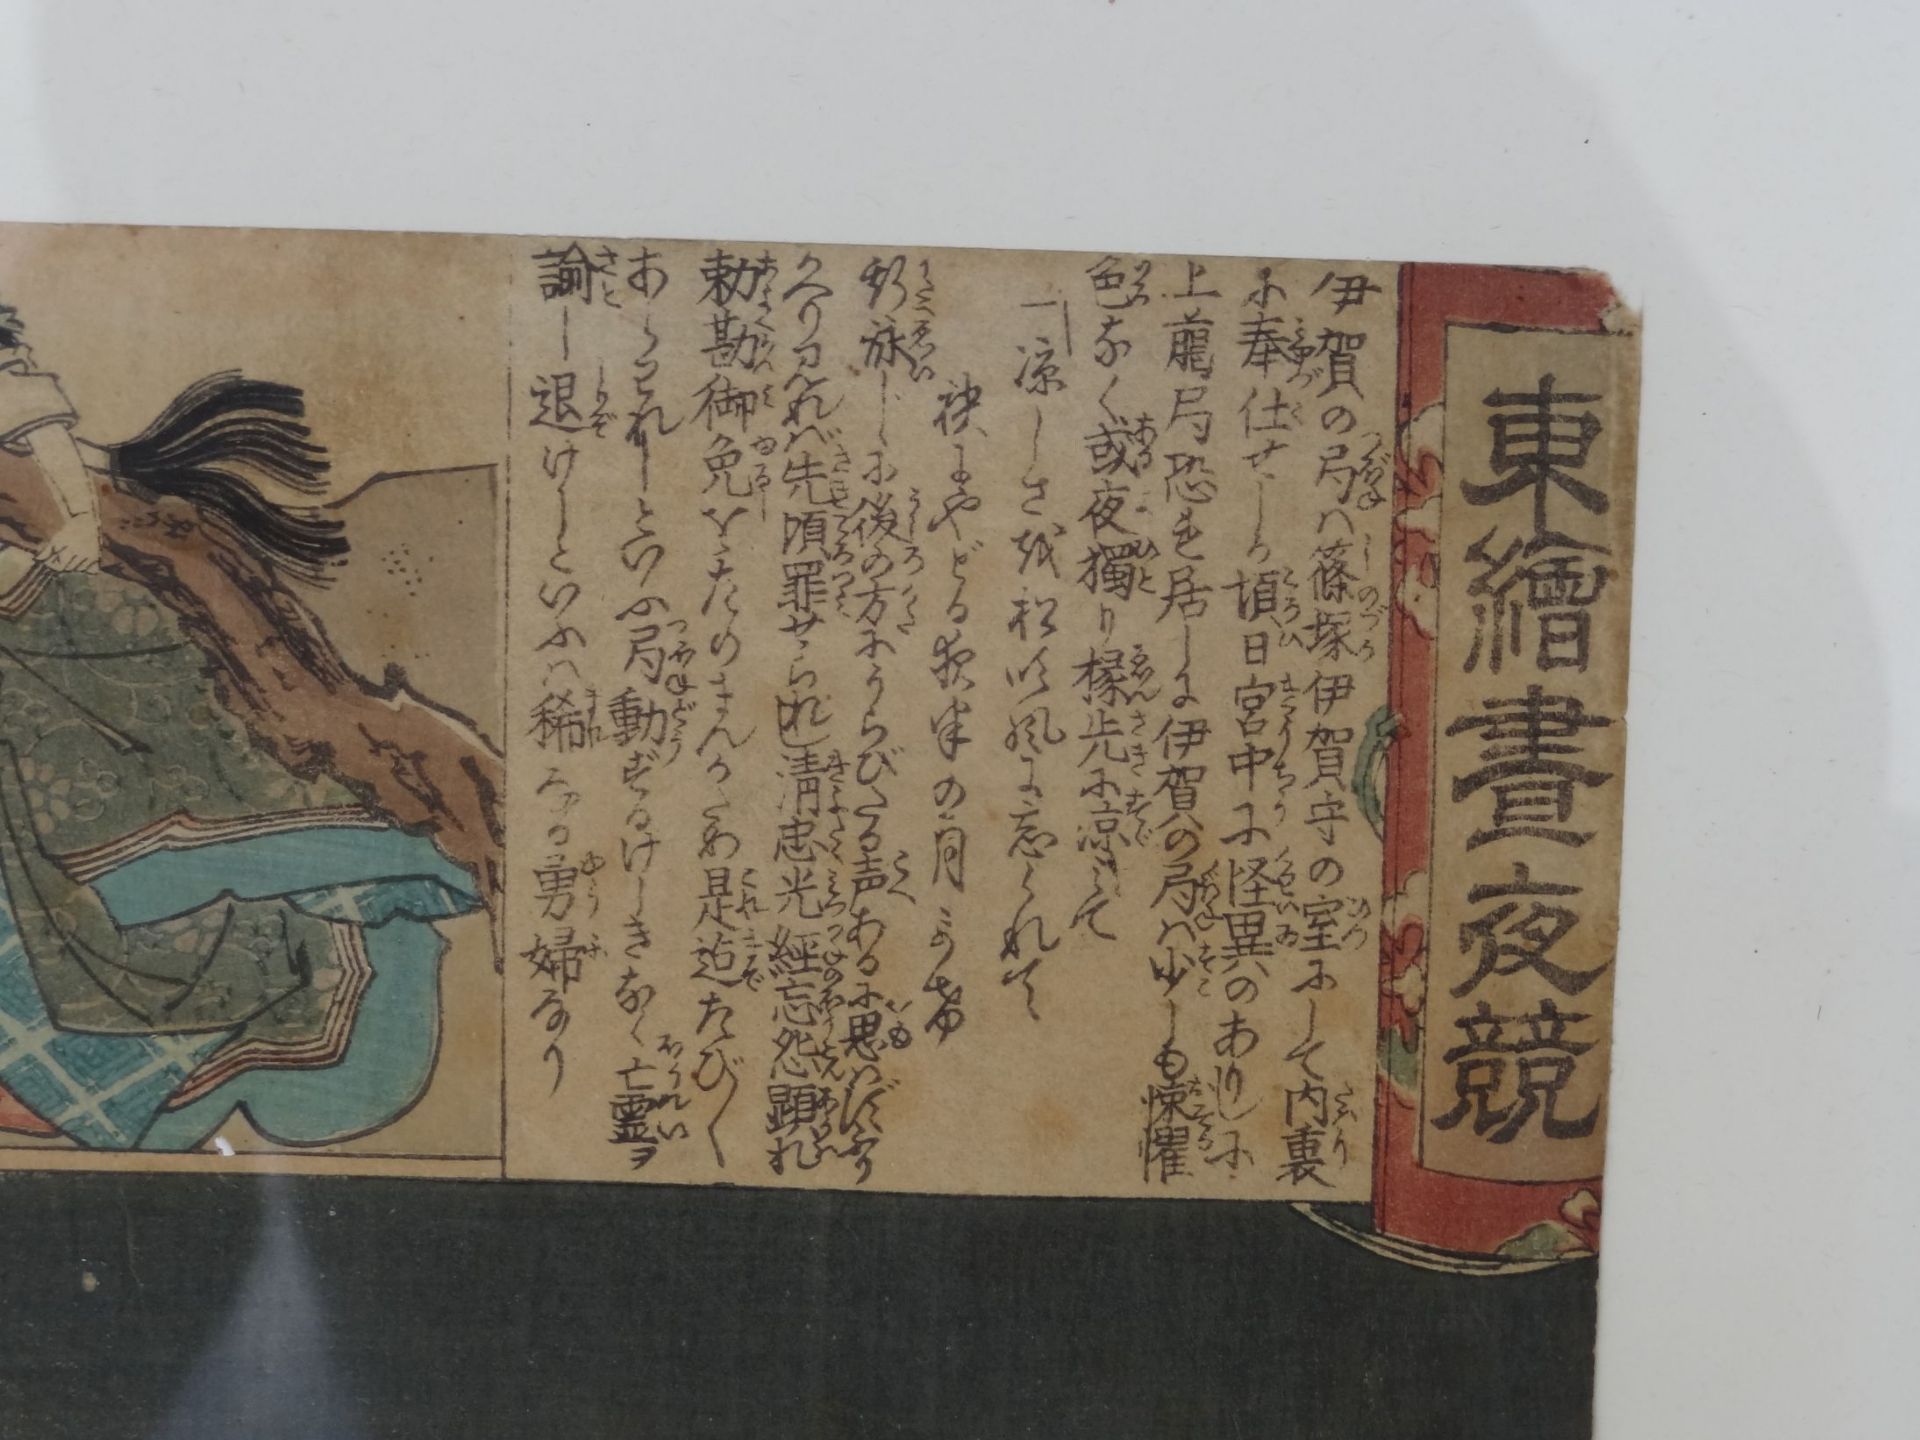 東繪晝夜競
伊賀の局ハ篠塚伊賀守の室にして内裏
に奉仕せしが頃日宮中に怪異のありしに
上﨟局恐れ居しに伊賀の局ハ少しも悚懼
色なく或夜獨り椽先に凉みて
凉しさを松吹風に忘られて
袂にやどる夜半の月かげ
と詠じしに後の方にうらびたる声あるに思はずふり
かへり見れバ先頃罪せられし清忠光經忘怨顕れ
勅勘御免をえたのまんがため是迠たび〱
あらわれしといふ局動ずるけしきなく亡霊ヲ
諭し退けしといふハ稀なる勇婦なり